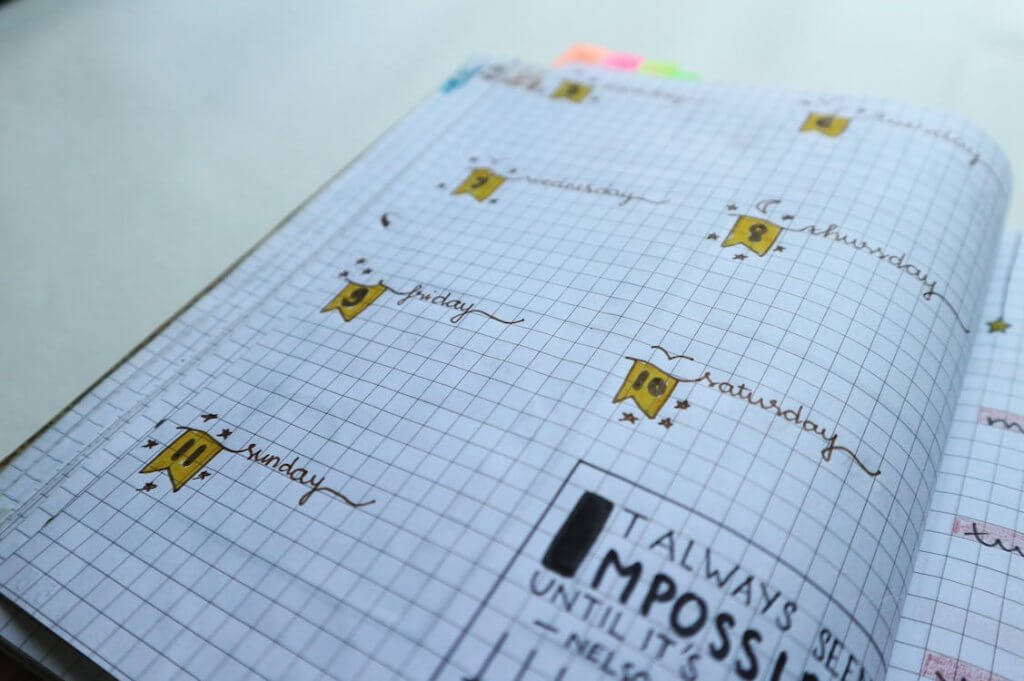 5
6 tuesday
7 wednesday
8 thursday
9 friday
10 saturday
11 sunday
IT ALWAYS SEE
IMPOSSI
UNTIL IT'S
- NELSO
m
tu